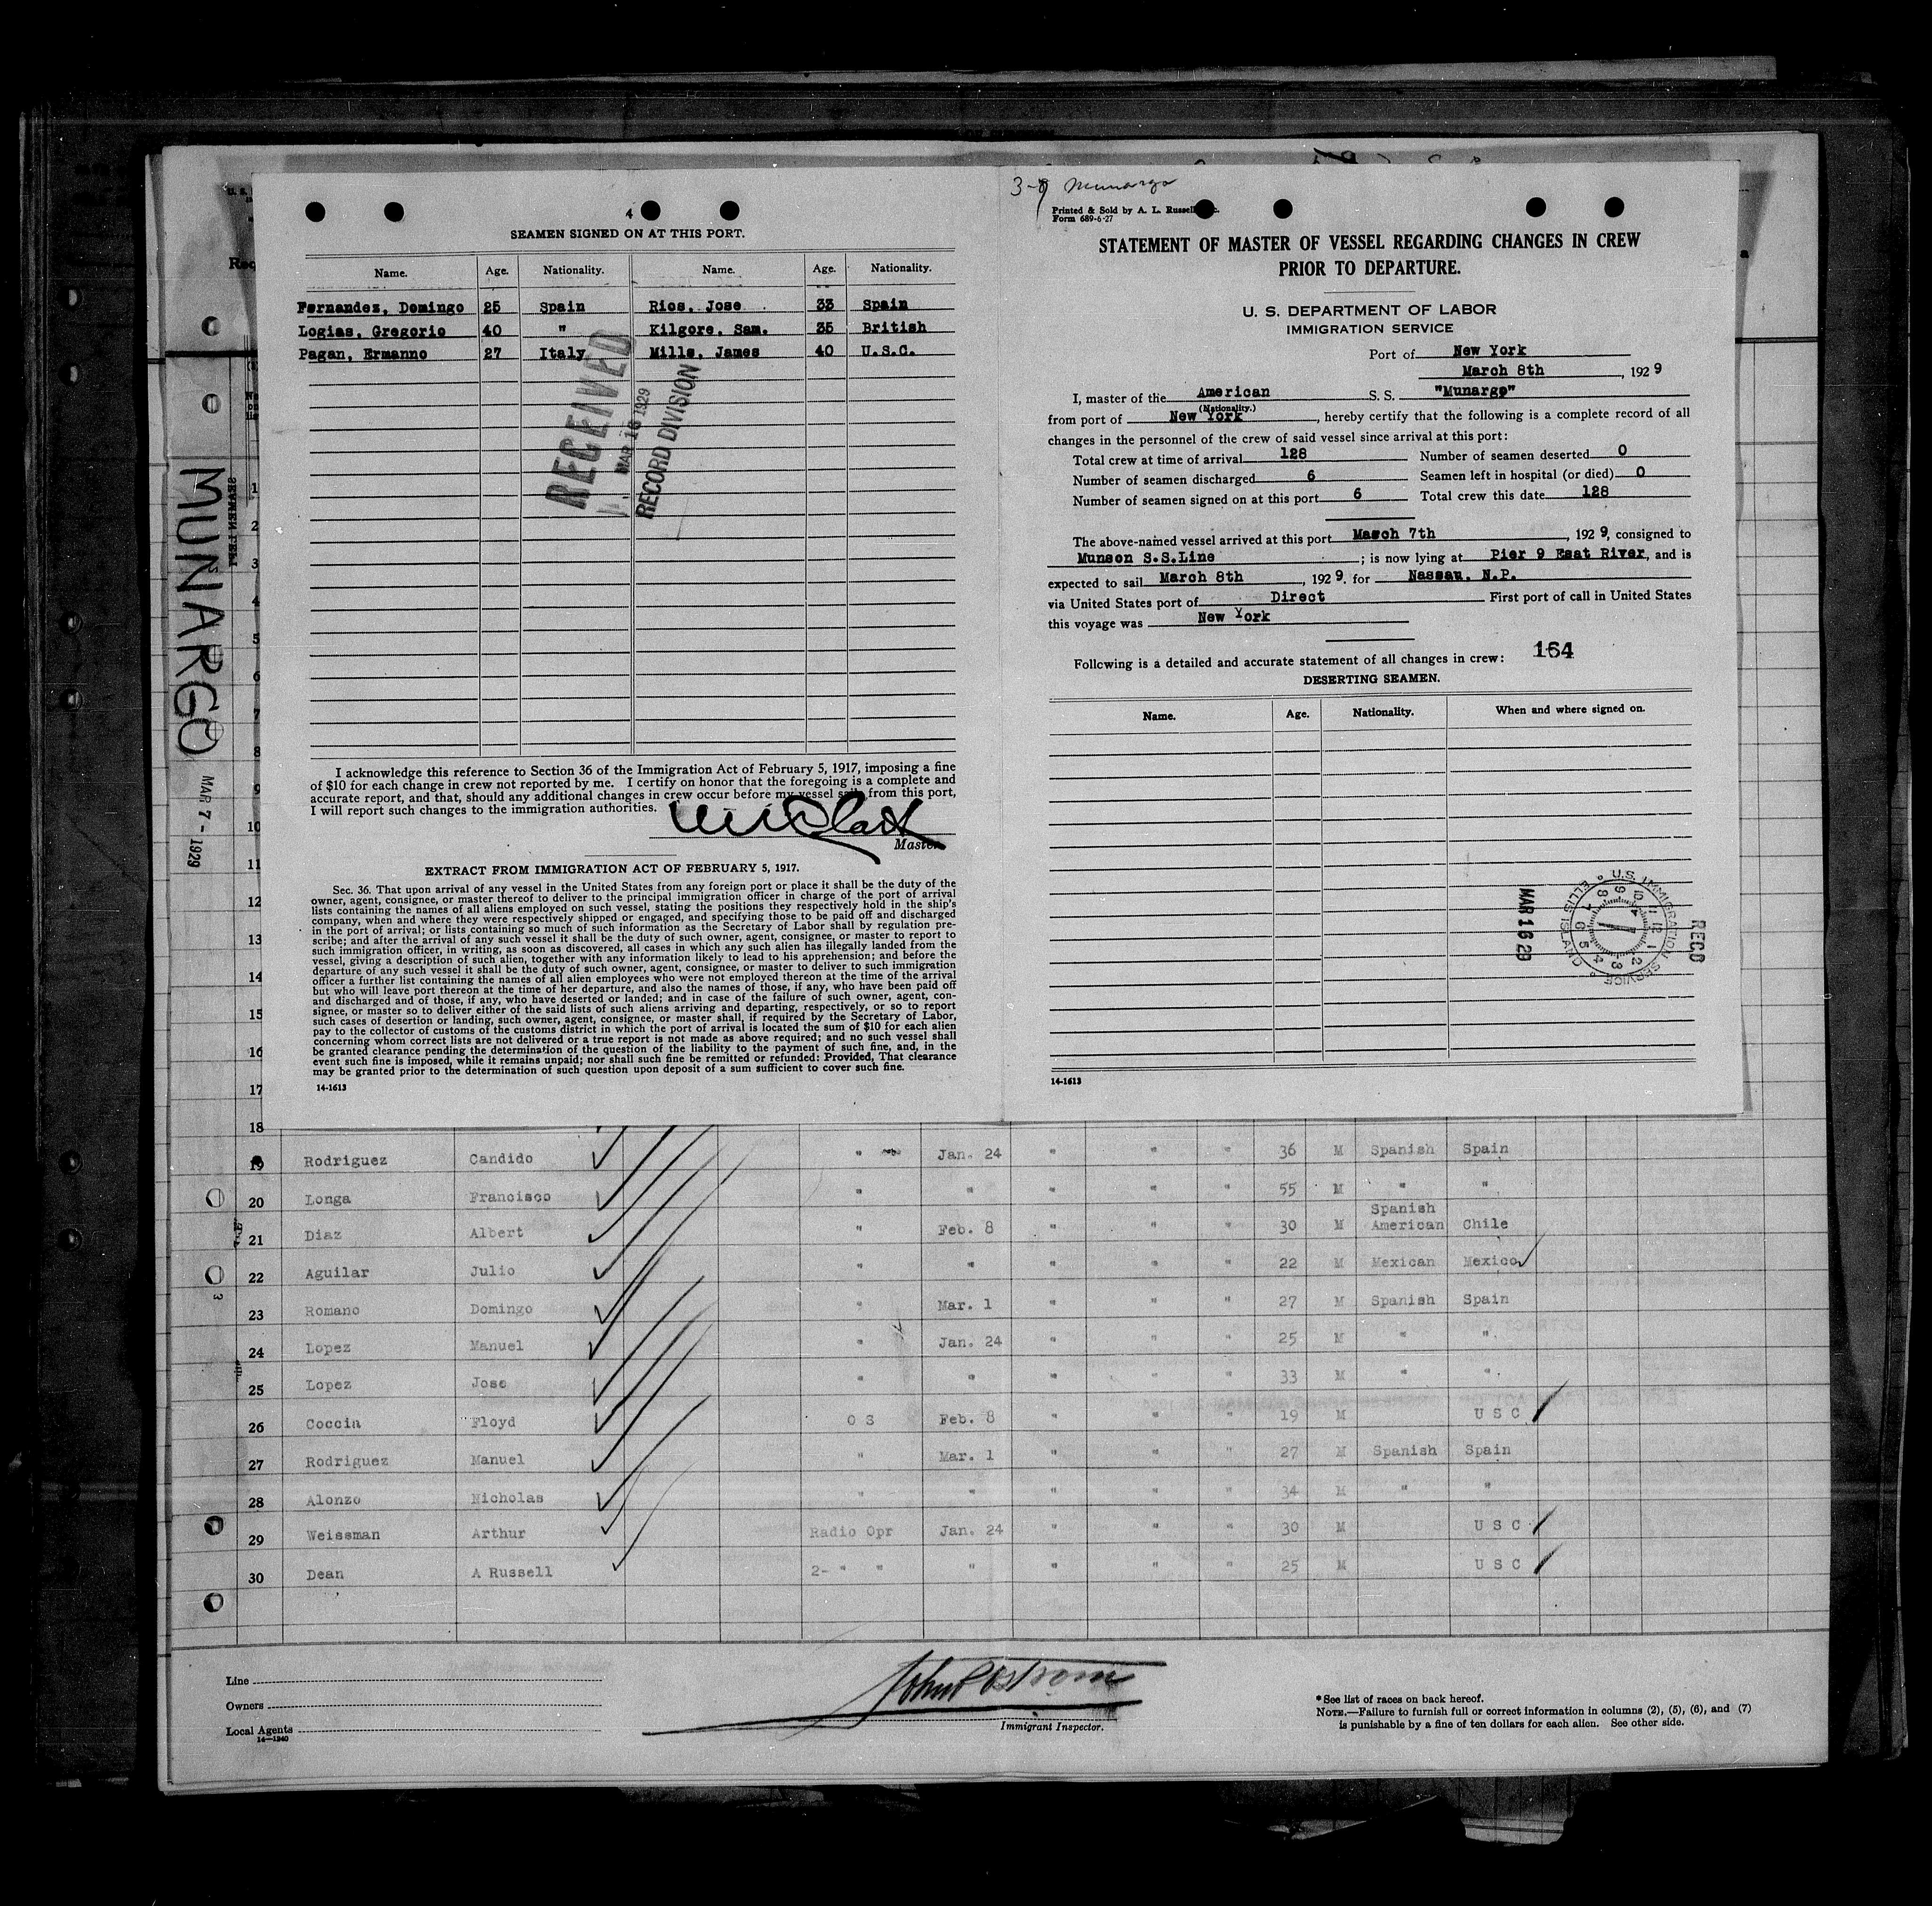 4
SEAMEN SIGNED ON AT THIS PORT.
Name. Age. Nationality. Name. Age. Nationality.
Fernandez, Domingo 25 Spain Rios, Jose 33 Spain
Logias, Gregorio 40 " Kilgore, Sam. 35 British
Pagan, Ermanno 27 Italy Mills, James 40 U.S.C.
RECEIVED
MAR 16 1929
RECORD DIVISION
I acknowledge this reference to Section 36 of the Immigration Act of February 5, 1917, imposing a fine
of $10 for each change in crew not reported by me. I certify on honor that the foregoing is a complete and
accurate report, and that, should any additional changes in crew occur before my vessel sails from this port,
I will report such changes to the immigration authorities.
Master.
EXTRACT FROM IMMIGRATION ACT OF FEBRUARY 5, 1917.
Sec. 36. That upon arrival of any vessel in the United States from any foreign port or place it shall be the duty of the
owner, agent, consignee, or master thereof to deliver to the principal immigration officer in charge of the port of arrival
lists containing the names of all aliens employed on such vessel, stating the positions they respectively hold in the ship's
company, when and where they were respectively shipped or engaged, and specifying those to be paid off and discharged
in the port of arrival; or lists containing so much of such information as the Secretary of Labor shall by regulation pre-
scribe; and after the arrival of any such vessel it shall be the duty of such owner, agent, consignee, or master to report to
such immigration officer, in writing, as soon as discovered, all cases in which any such alien has illegally landed from the
vessel, giving a description of such alien, together with any information likely to lead to his apprehension; and before the
departure of any such vessel it shall be the duty of such owner, agent, consignee, or master to deliver to such immigration
officer a further list containing the names of all alien employees who were not employed thereon at the time of the arrival
but who will leave port thereon at the time of her departure, and also the names of those, if any, who have been paid off
and discharged and of those, if any, who have deserted or landed; and in case of the failure of such owner, agent, con-
signee, or master so to deliver either of the said lists of such aliens arriving and departing, respectively, or so to report
such cases of desertion or landing, such owner, agent, consignee, or master shall, if required by the Secretary of Labor,
pay to the collector of customs of the customs district in which the port of arrival is located the sum of $10 for each alien
concerning whom correct lists are not delivered or a true report is not made as above required; and no such vessel shall
be granted clearance pending the determination of the question of the liability to the payment of such fine, and, in the
event such fine is imposed, while it remains unpaid; nor shall such fine be remitted or refunded: Provided, That clearance
may be granted prior to the determination of such question upon deposit of a sum sufficient to cover such fine.
14-1613
3-8 Munargo
Printed & Sold by A. L. Russell
Form 689-6-27
STATEMENT OF MASTER OF VESSEL REGARDING CHANGES IN CREW
PRIOR TO DEPARTURE.
U. S. DEPARTMENT OF LABOR
IMMIGRATION SERVICE
Port of New York
March 8th, 1929
I, master of the American S. S. "Munargo"
(Nationality.)
from port of New York, hereby certify that the following is a complete record of all
changes in the personnel of the crew of said vessel since arrival at this port:
Total crew at time of arrival 128 Number of seamen deserted 0
Number of seamen discharged 6 Seamen left in hospital (or died) 0
Number of seamen signed on at this port 6 Total crew this date 128
The above-named vessel arrived at this port March 7th, 1929, consigned to
Munson S.S.Line; is now lying at Pier 9 East River, and is
expected to sail March 8th, 1929. for Nassau. N.P.
via United States port of Direct First port of call in United States
this voyage was New York
Following is a detailed and accurate statement of all changes in crew: 164
DESERTING SEAMEN.
Name. Age. Nationality. When and where signed on.
REC'D
U.S. IMMIGRATION SERVICE ELLIS ISLAND
MAR 16 29
14-1613
MUNARGO
MAR 7 - 1929
1
2
3
4
5
6
7
8
9
10
11
12
13
14
15
16
17
18
19 Rodriguez Candido " Jan. 24 " " " 36 M Spanish Spain
20 Longa Francisco " " " " " 55 M " "
21 Diaz Albert " Feb. 8 " " " 30 M Spanish American Chile
22 Aguilar Julio " " " " " 22 M Mexican Mexico
23 Romano Domingo " Mar. 1 " " " 27 M Spanish Spain
24 Lopez Manuel " Jan. 24 " " " 25 M " "
25 Lopez Jose " " " " " 33 M " "
26 Coccia Floyd O S Feb. 8 " " " 19 M U S C
27 Rodriguez Manuel " Mar. 1 " " " 27 M Spanish Spain
28 Alonzo Nicholas " " " " " 34 M " "
29 Weissman Arthur Radio Opr Jan. 24 " " " 30 M U S C
30 Dean A Russell 2- " " " " " " 25 M U S C
Line
Owners
Local Agents
14-1240
Immigrant Inspector.
* See list of races on back hereof.
NOTE.—Failure to furnish full or correct information in columns (2), (5), (6), and (7)
is punishable by a fine of ten dollars for each alien. See other side.